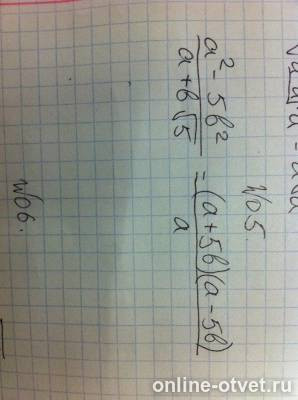 №5.
a² - 5b² / a + b√5 = (a+5b)(a-5b) / a
№6.
online-otvet.ru